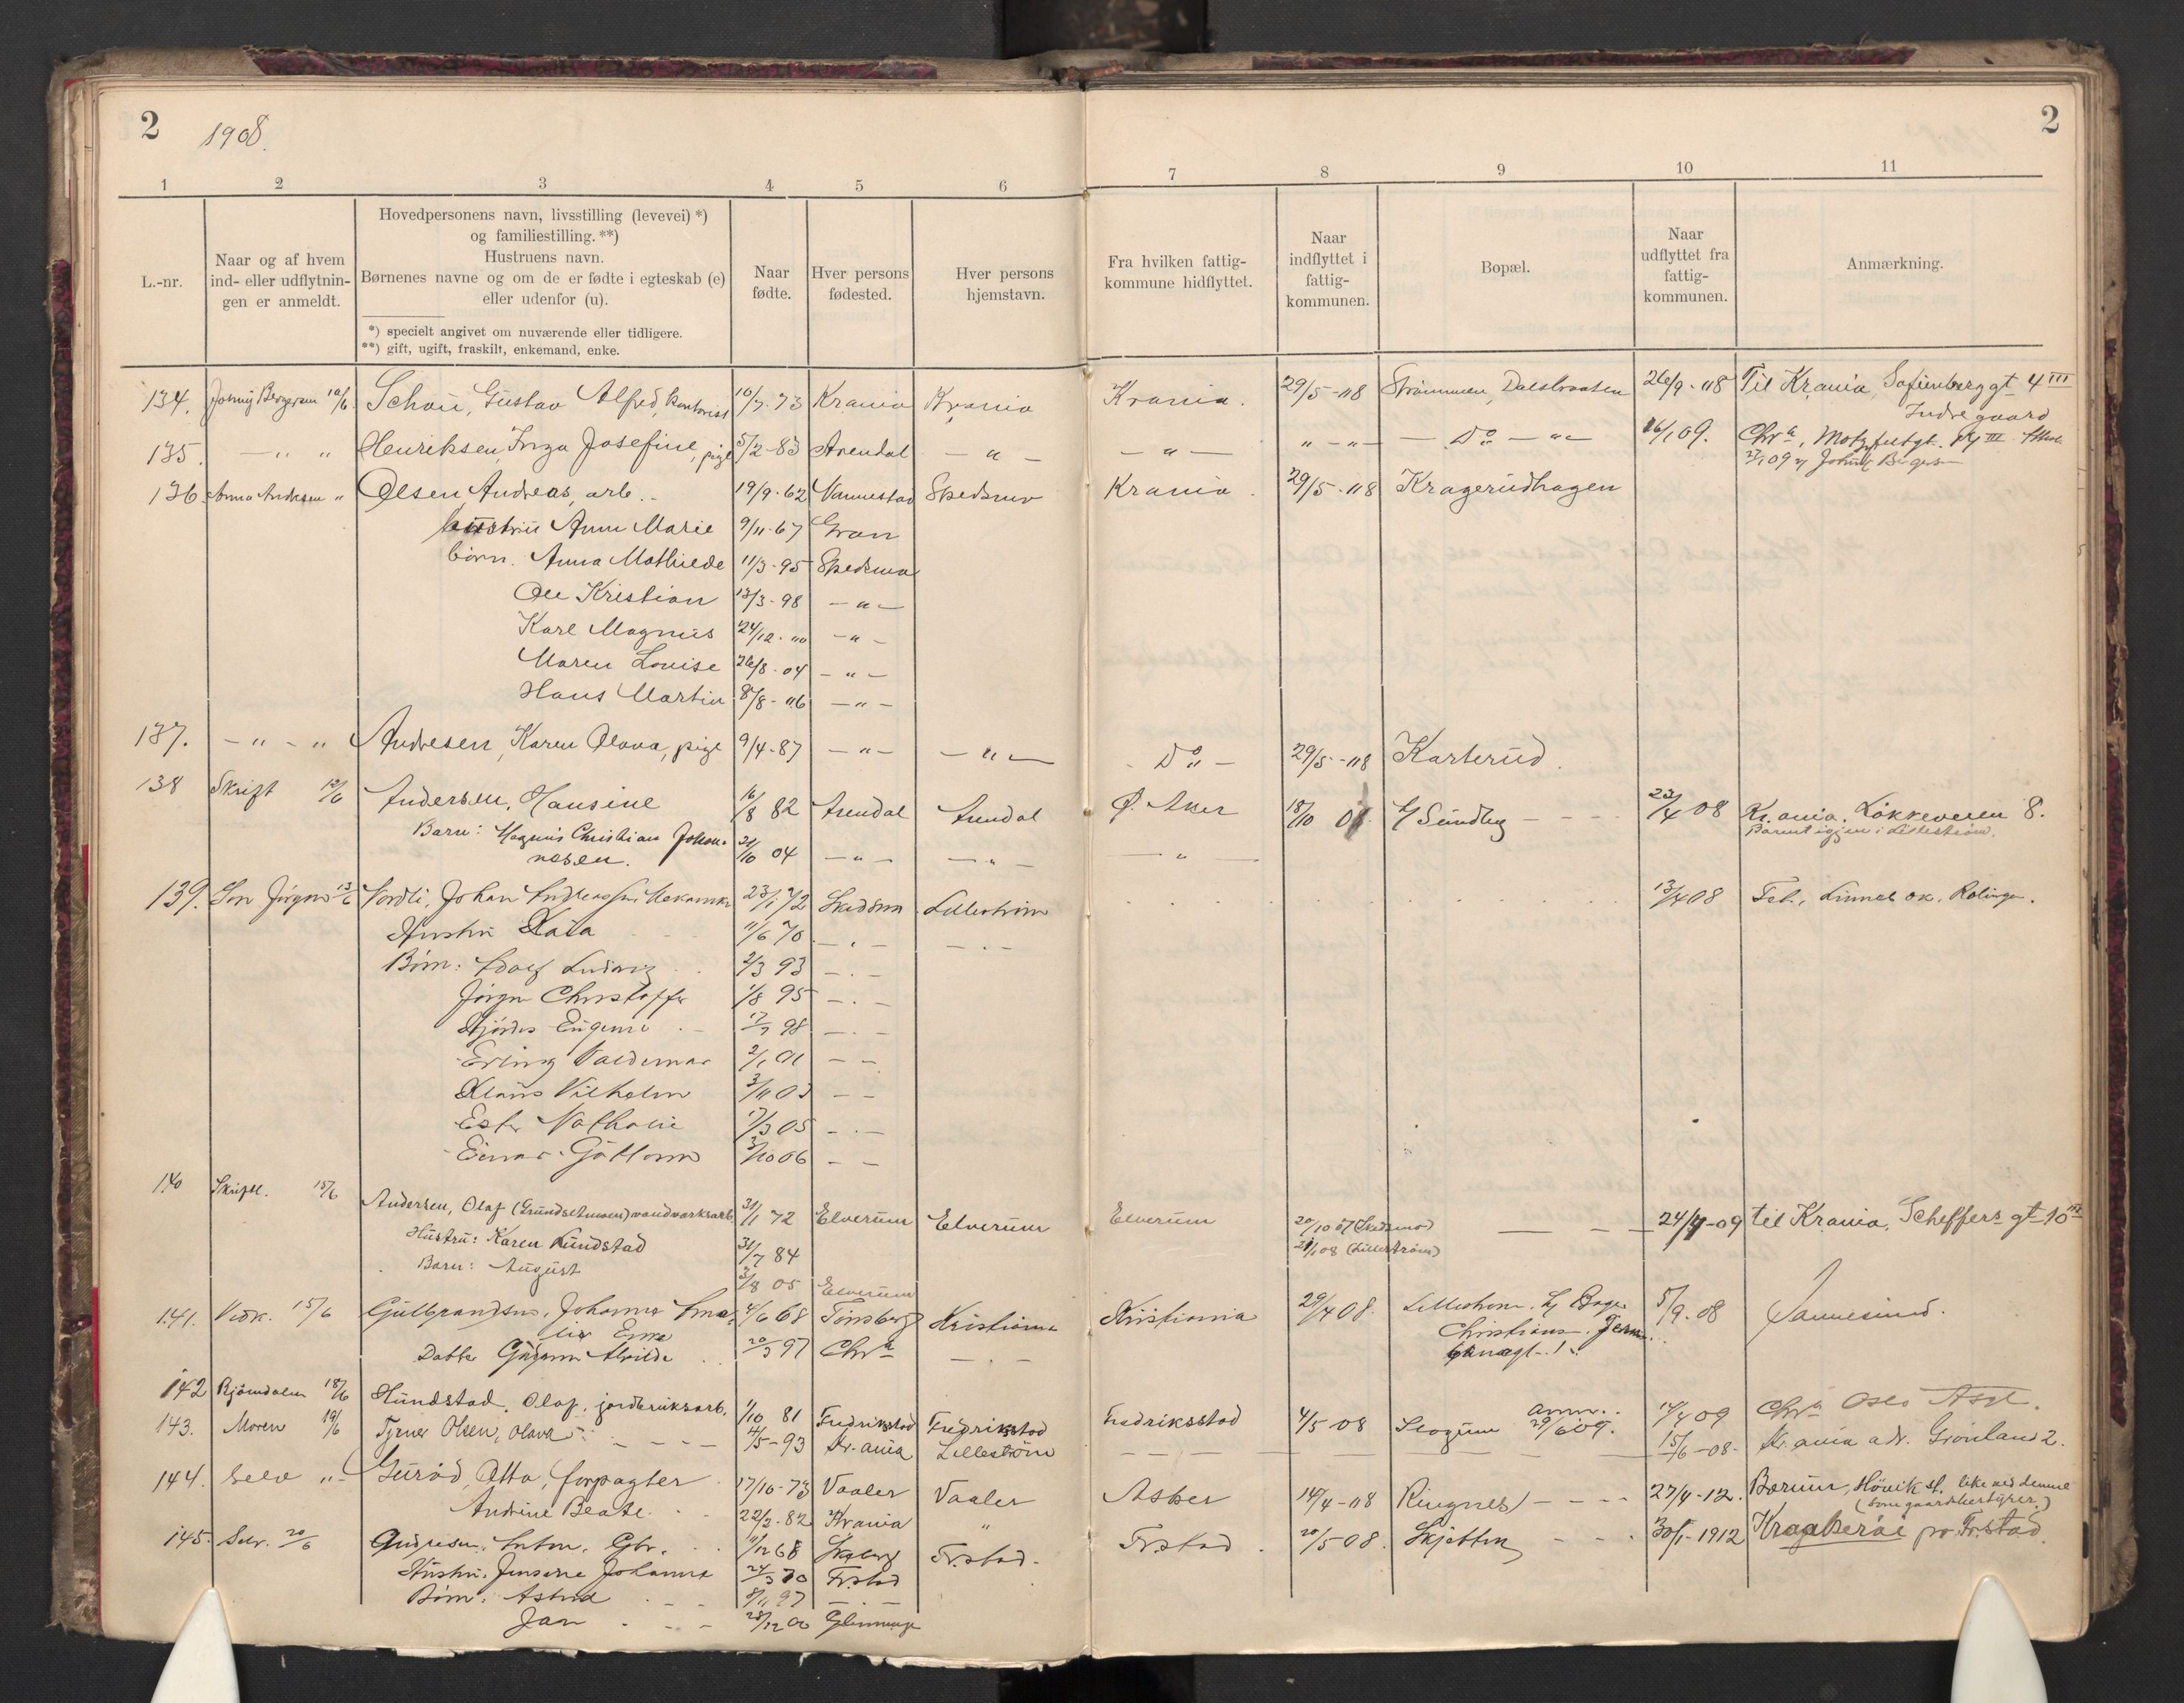 2 1908. 2
1 2 3 4 5 6 7 8 9 10 11
L.-nr.
Naar og af hvem
ind- eller udflytnin-
gen er anmeldt.
Hovedpersonens navn, livsstilling (levevei) *)
og familiestilling. **)
Hustruens navn.
Børnenes navne og om de er fødte i egteskab (e)
eller udenfor (u).
*) specielt angivet om nuværende eller tidligere.
**) gift, ugift, fraskilt, enkemand, enke.
Naar
fødte.
Hver persons
fødested.
Hver persons
hjemstavn.
Fra hvilken fattig-
kommune hidflyttet.
Naar
indflyttet i
fattig-
kommunen.
Bopæl.
Naar
udflyttet fra
fattig-
kommunen.
Anmærkning.
134. Johny Bergersen 10/6 Schou, Gustav Alfred, kontorist 10/7-73 Krania Krania Krania. 29/5-08 Strømmen, Dalsbraaten 26/9-08 Til Krania, Sofienberggt 4 III
Indregaard
135. -"- " Henriksen, Inga Josefine, pige 5/2-83 Arendal -"- -"- "-"- - Do - "- 16/1 09. Chra, Motzfeldtgt. III
136. Anna Andresen " Olsen Andreas, arb. - 19/9-62 Vannestad Skedsmo Krania. 29/5-08 Kragerudhagen
hustru Anne Marie 9/11-67 Gran
børn. Anna Mathilde 11/3-95 Skedsmo
Ole Kristian 13/3-98 -"-
Karl Magnus 24/12-00 -"-
Maren Lovise 26/8-04 -"-
Hans Martin 8/8-06 -"-
137. -"-" Andresen, Karen Olava, pige 9/4-87 -"- -"- - Do - 29/5-08 Karterud.
138 Skrift 12/6 Andersen, Hansine 16/8 82 Arendal Arendal Ø. Aker 18/10 07 Sundby - - - 23/4 08 Kr.ania. Løkkeveien 8.
Barn: Magnus Christian Johan- 21/10 04 -"- -"- -"- Barnet igjen i Lillestrøm.
nesen.
139. Jørgen 13/6 Nordli, Johan 23/1 72 Skedsm Lillestrøm 13/4 08 Fet,
Hustru Kaia 11/6 70 - . - - . -
Børn: Adolf Ludvig 2/3 93 - . -
Jørgen Christoffer 1/8 95 - . -
Hjørdis Eugenie 17/7 98 - . -
Erling Valdemar 2/1 01 - -
Klaus Vilhelm 3/11 03 - -
Ester Nathalie 17/3 05 - . -
Einar Gothorm 3/10 06 - -
140 Skriftl. 15/6 Andersen, Olaf (Grundsetmoen) vandværksarb. 31/1 72 Elverum Elverum Elverum 20/10 07 (Skedsmo) — — 24/4-09 til Krania, Scheffers gt 10 III
Hustru: Karen Kundstad 31/7 84 21/1 08 (Lillestrøm)
Barn: August 3/8 05 Elverum
141. Vedk. 15/6 Gulbrandsen, Johanne Ama- 4/6 68 Tønsberg Kristiania Kristiania 29/4 08. Lillestrøm. 5/9-08 Sannesund.
lie Christians. Jern-
Datter 20/3 97 Chra - . - banegt. 1.
142 Bjørndalen 18/6 Hundstad, Olaf, jordbruksarb. 1/10 81 Fredrikstad Fredrikstad Fredriksstad 4/5-08 Skogum anm. 29/6 09. 14/4 09 Chra Oslo Asyl.
143. Moren 19/6 Tyrner Olsen, Olava - - - 4/5-93 Kr.ania Lillestrøm — — — 15/6-08- Kr.ania adr. Grønland 2.
144. Selv "- Gurød, Otto, forpagter 17/10-73 Vaaler Vaaler Asker 14/4-08 Ringnes - - - 27/4-12. Bærum, Høvik st. like ved denne
Andrine Beate 22/2-82 Krania " (som gaardbestyrer.)
145. Selv. 20/6 Andresen, Anton, Gbr. 11/12 68 Fr.stad. Fr.stad. 20/5 08. Skjetten - - 30/1-1912 Kragerøi pr Fr.stad.
Hustru: Jensine Johanne 24/3 70 Fr.stad
Børn: Astrid - - 8/11 97 - . -
Jan - - 28/12 00 Glemminge